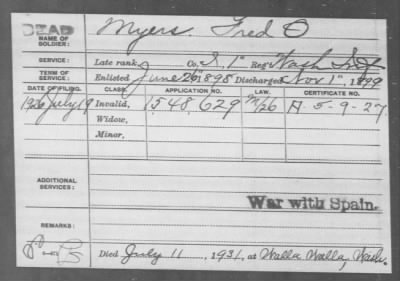 DEAD
NAME OF SOLDIER: Myers Fred O
SERVICE: Late rank Co. I, 1" Reg't Wash Inf
TERM OF SERVICE: Enlisted June 26" 1898 Discharged Nov 1", 1899
DATE OF FILING. CLASS. APPLICATION NO. LAW. CERTIFICATE NO.
1926 July 19 Invalid, 1548,629 A-5-9-27
Widow,
Minor,
ADDITIONAL SERVICES:
War with Spain.
REMARKS:
Died July 11, 1931, at Walla Walla, Wash.